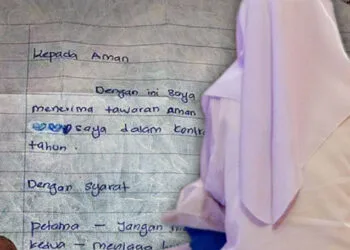 Kepada Aman
Dengan ini saya
menerima tawaran Aman
saya dalam kontr
tahun.
Dengan syarat
petama – Jangan
kedua – menjaga